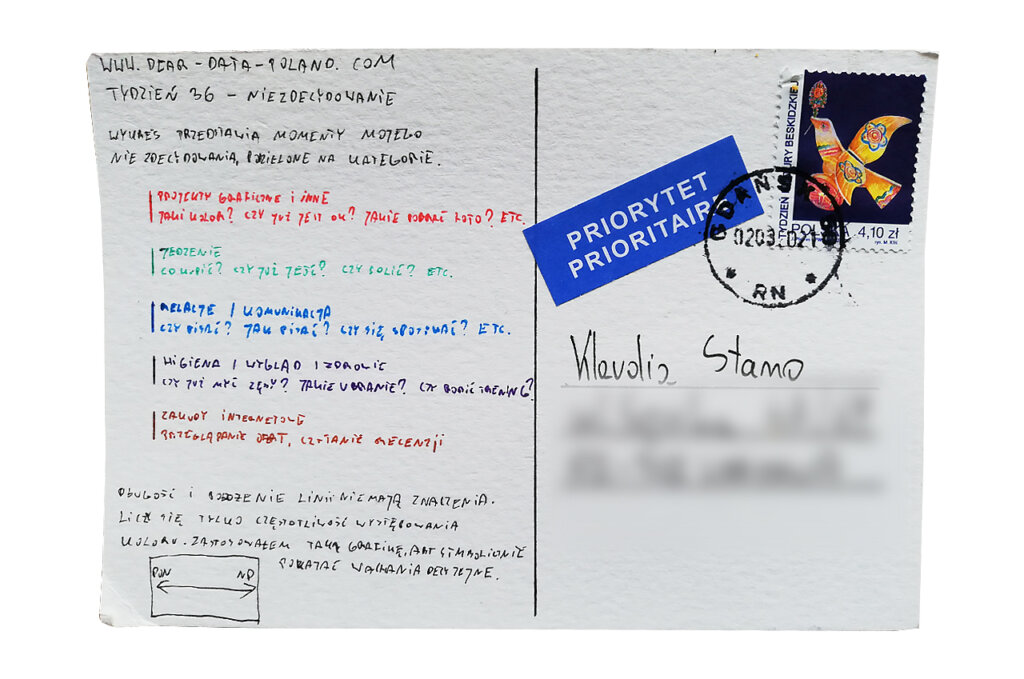 WWW.DEAR-DATA-POLAND.COM
TYDZIEŃ 36 - NIEZDECYDOWANIE
WYKRES PRZEDSTAWIA MOMENTY MOJEGO
NIEZDECYDOWANIA, PODZIELONE NA KATEGORIE.
PROJEKTY GRAFICZNE I INNE
JAKI KOLOR? CZY JUŻ JEST OK? JAKIE DOBRAĆ FOTO? ETC.
JEDZENIE
CO KUPIĆ? CZY JUŻ JEŚĆ? CZY SOLIĆ? ETC.
RELACJE / KOMUNIKACJA
CZY PISAĆ? JAK PISAĆ? CZY SIĘ SPOTYKAĆ? ETC.
HIGIENA / WYGLĄD / ZDROWIE
CZY JUŻ MYĆ ZĘBY? JAKIE UBRANIE? CZY ROBIĆ TRENING?
ZAKUPY INTERNETOWE
PRZEGLĄDANIE OFERT, CZYTANIE RECENZJI
DŁUGOŚĆ I POŁOŻENIE LINII NIE MAJĄ ZNACZENIA.
LICZY SIĘ TYLKO CZĘSTOTLIWOŚĆ WYSTĘPOWANIA
KOLORU. ZASTOSOWAŁEM TAKĄ GRAFIKĘ, ABY SYMBOLICZNIE
POKAZAĆ WAHANIA DECYZYJNE.
PON ND
TYDZIEŃ KULTURY BESKIDZKIEJ
POLSKA 4,10 zł
PRIORYTET
PRIORITAIRE
GDAŃSK
RN
Stamo